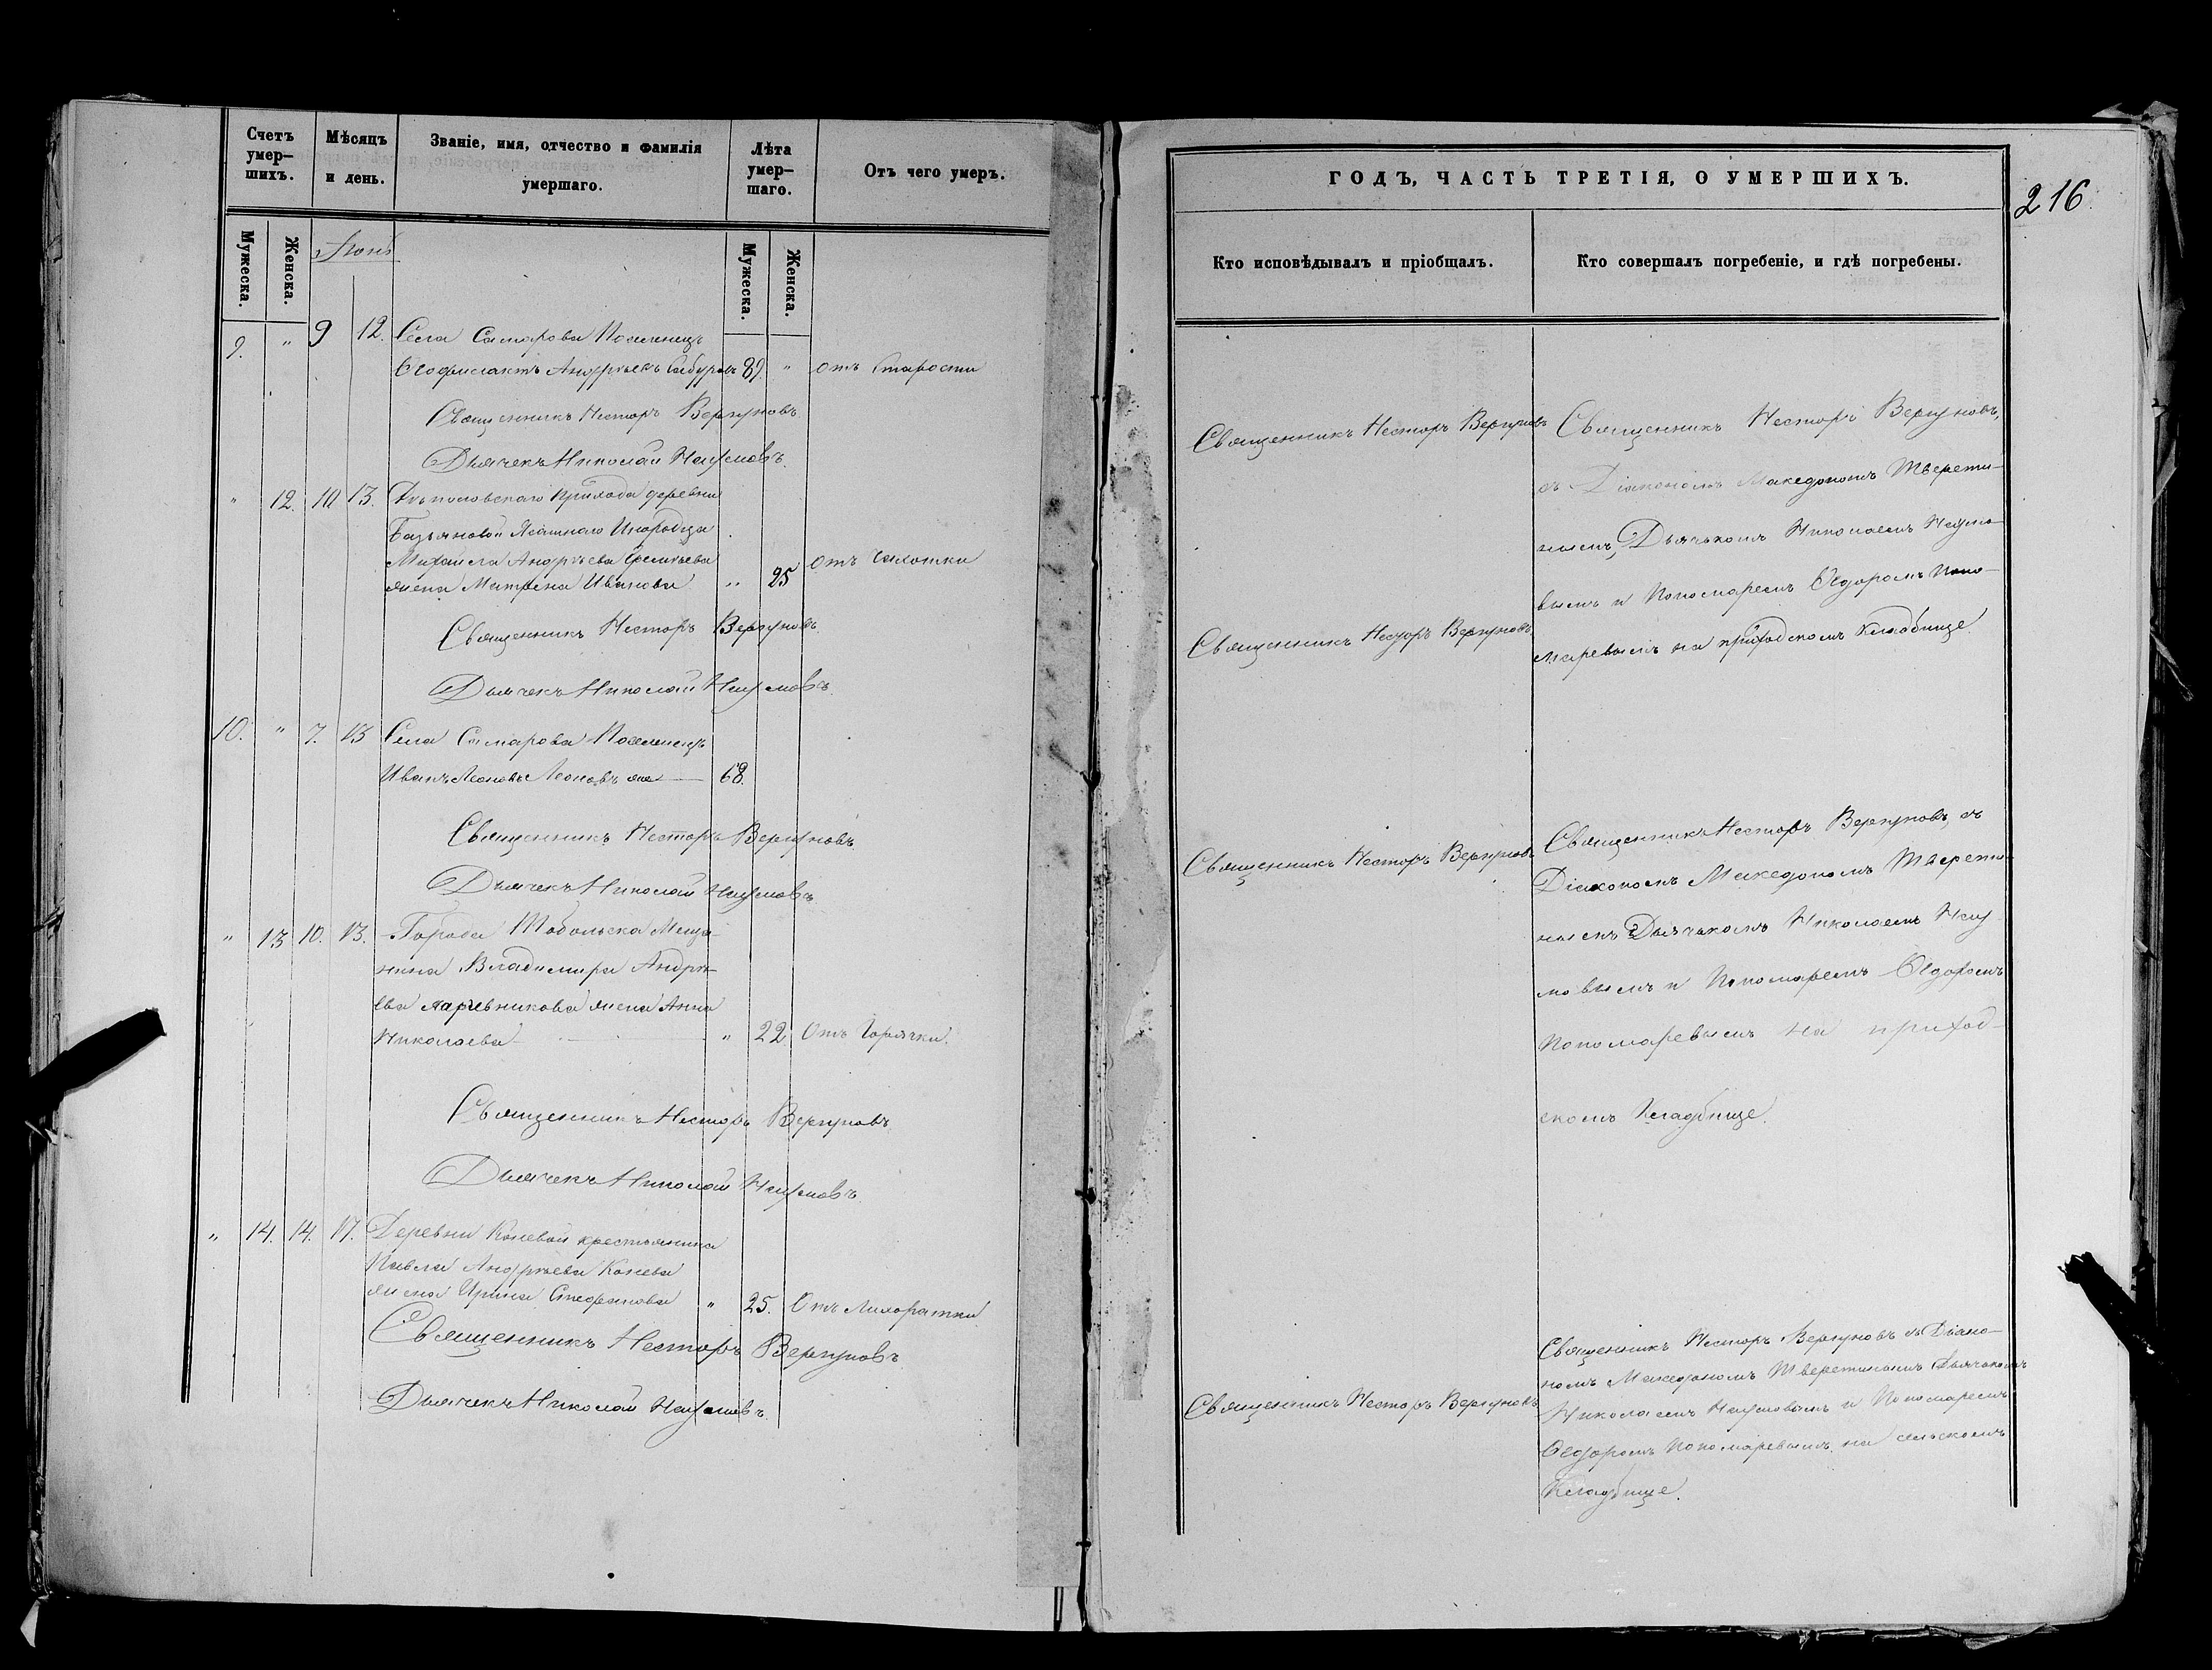 Счетъ умер–
шихъ.
Мѣсяцъ
и день.
Званіе, имя, отчество и фамилія
умершаго.
Лѣта
умер–
шаго.
Отъ чего умеръ.
Мужеска.
Женска.
Мужеска.
Женска.
9. " 9 12. Села Самарова Поселенецъ
Андреевъ 89. " отъ Старости
Священникъ Несторъ Вергуновъ
Дьячекъ Николай Наумовъ.
" 12. 10 13. прихода деревни
Инородца
Михаила Андреева
жена Матрена Иванова " 25 отъ
Священникъ Несторъ Вергуновъ.
Дьячекъ Николай Наумовъ.
10. " 7. 13 Села Самарова Поселенецъ
Иванъ Леоновъ 68.
Священникъ Несторъ Вергуновъ
Дьячекъ Николай Наумовъ
" 13 10. 13. Города Тобольска Меща–
нина Владимира Андре–
ева жена Анна
Николаева " 22 Отъ Горячки.
Священникъ Несторъ Вергуновъ
Дьячекъ Николай Наумовъ.
" 14. 14. 17. Деревни Коневой крестьянина
Павла Андреева Конева
жена Ирина Стефанова " 25. Отъ Лихоратки
Священникъ Несторъ Вергуновъ
Дьячекъ Николай Наумовъ.
ГОДЪ, ЧАСТЬ ТРЕТІЯ, О УМЕРШИХЪ.
216.
Кто исповѣдывалъ и пріобщалъ.
Кто совершалъ погребеніе, и гдѣ погребены.
Священникъ Несторъ Вергуновъ
Священникъ Несторъ Вергуновъ,
съ Діакономъ Македономъ Тверети–
нымъ, Дьячькомъ Николаемъ Наумо–
вымъ и Пономаремъ Ѳедоромъ Поно–
маревымъ на приходскомъ Кладбище.
Священникъ Несторъ Вергуновъ
Священникъ Несторъ Вергуновъ
Священникъ Несторъ Вергуновъ, съ
Діакономъ Македономъ Твер
нымъ Дьячькомъ Николаемъ Нау–
мовымъ и Пономаремъ Ѳедоромъ
Пономаревымъ на приход–
скомъ Кладбище.
Священникъ Несторъ Вергуновъ
Священникъ Несторъ Вергуновъ съ Діако–
номъ Македономъ Тверетинымъ Дьячькомъ
Николаемъ Наумовымъ и Пономаремъ
Ѳедоромъ Пономаревымъ на сельскомъ
Кладбище.